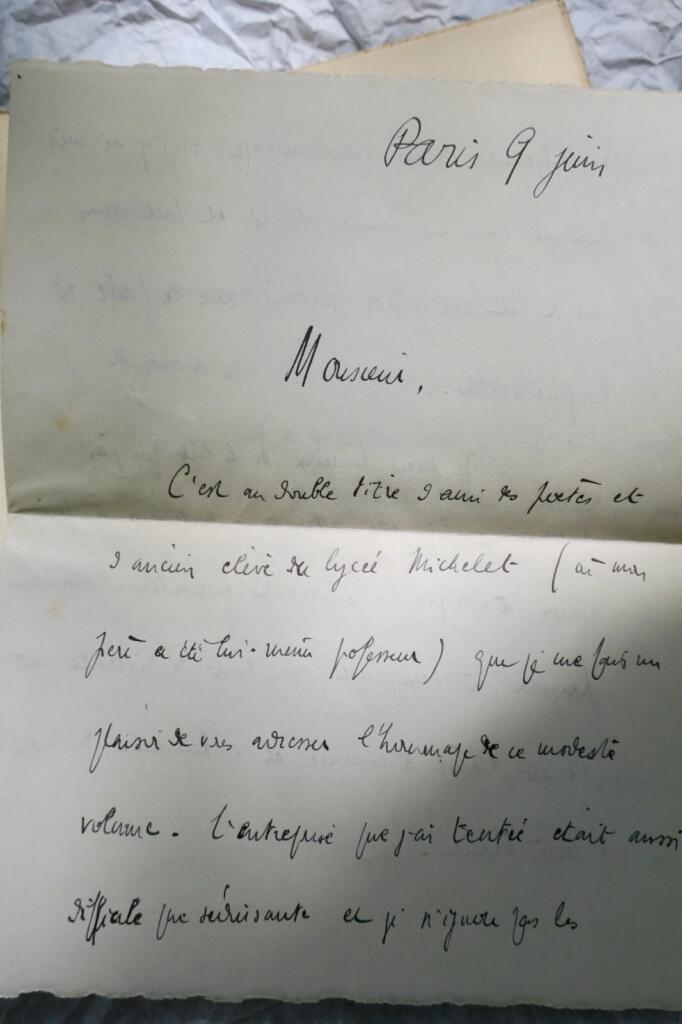 Paris 9 juin
Monsieur,
C'est au double titre d'ami des poètes et
d'ancien élève du lycée Michelet (où mon
père a été lui-même professeur) que je me fais un
plaisir de vous adresser l'hommage de ce modeste
volume. L'entreprise que j'ai tentée était aussi
difficile que séduisante et je n'ignore pas les